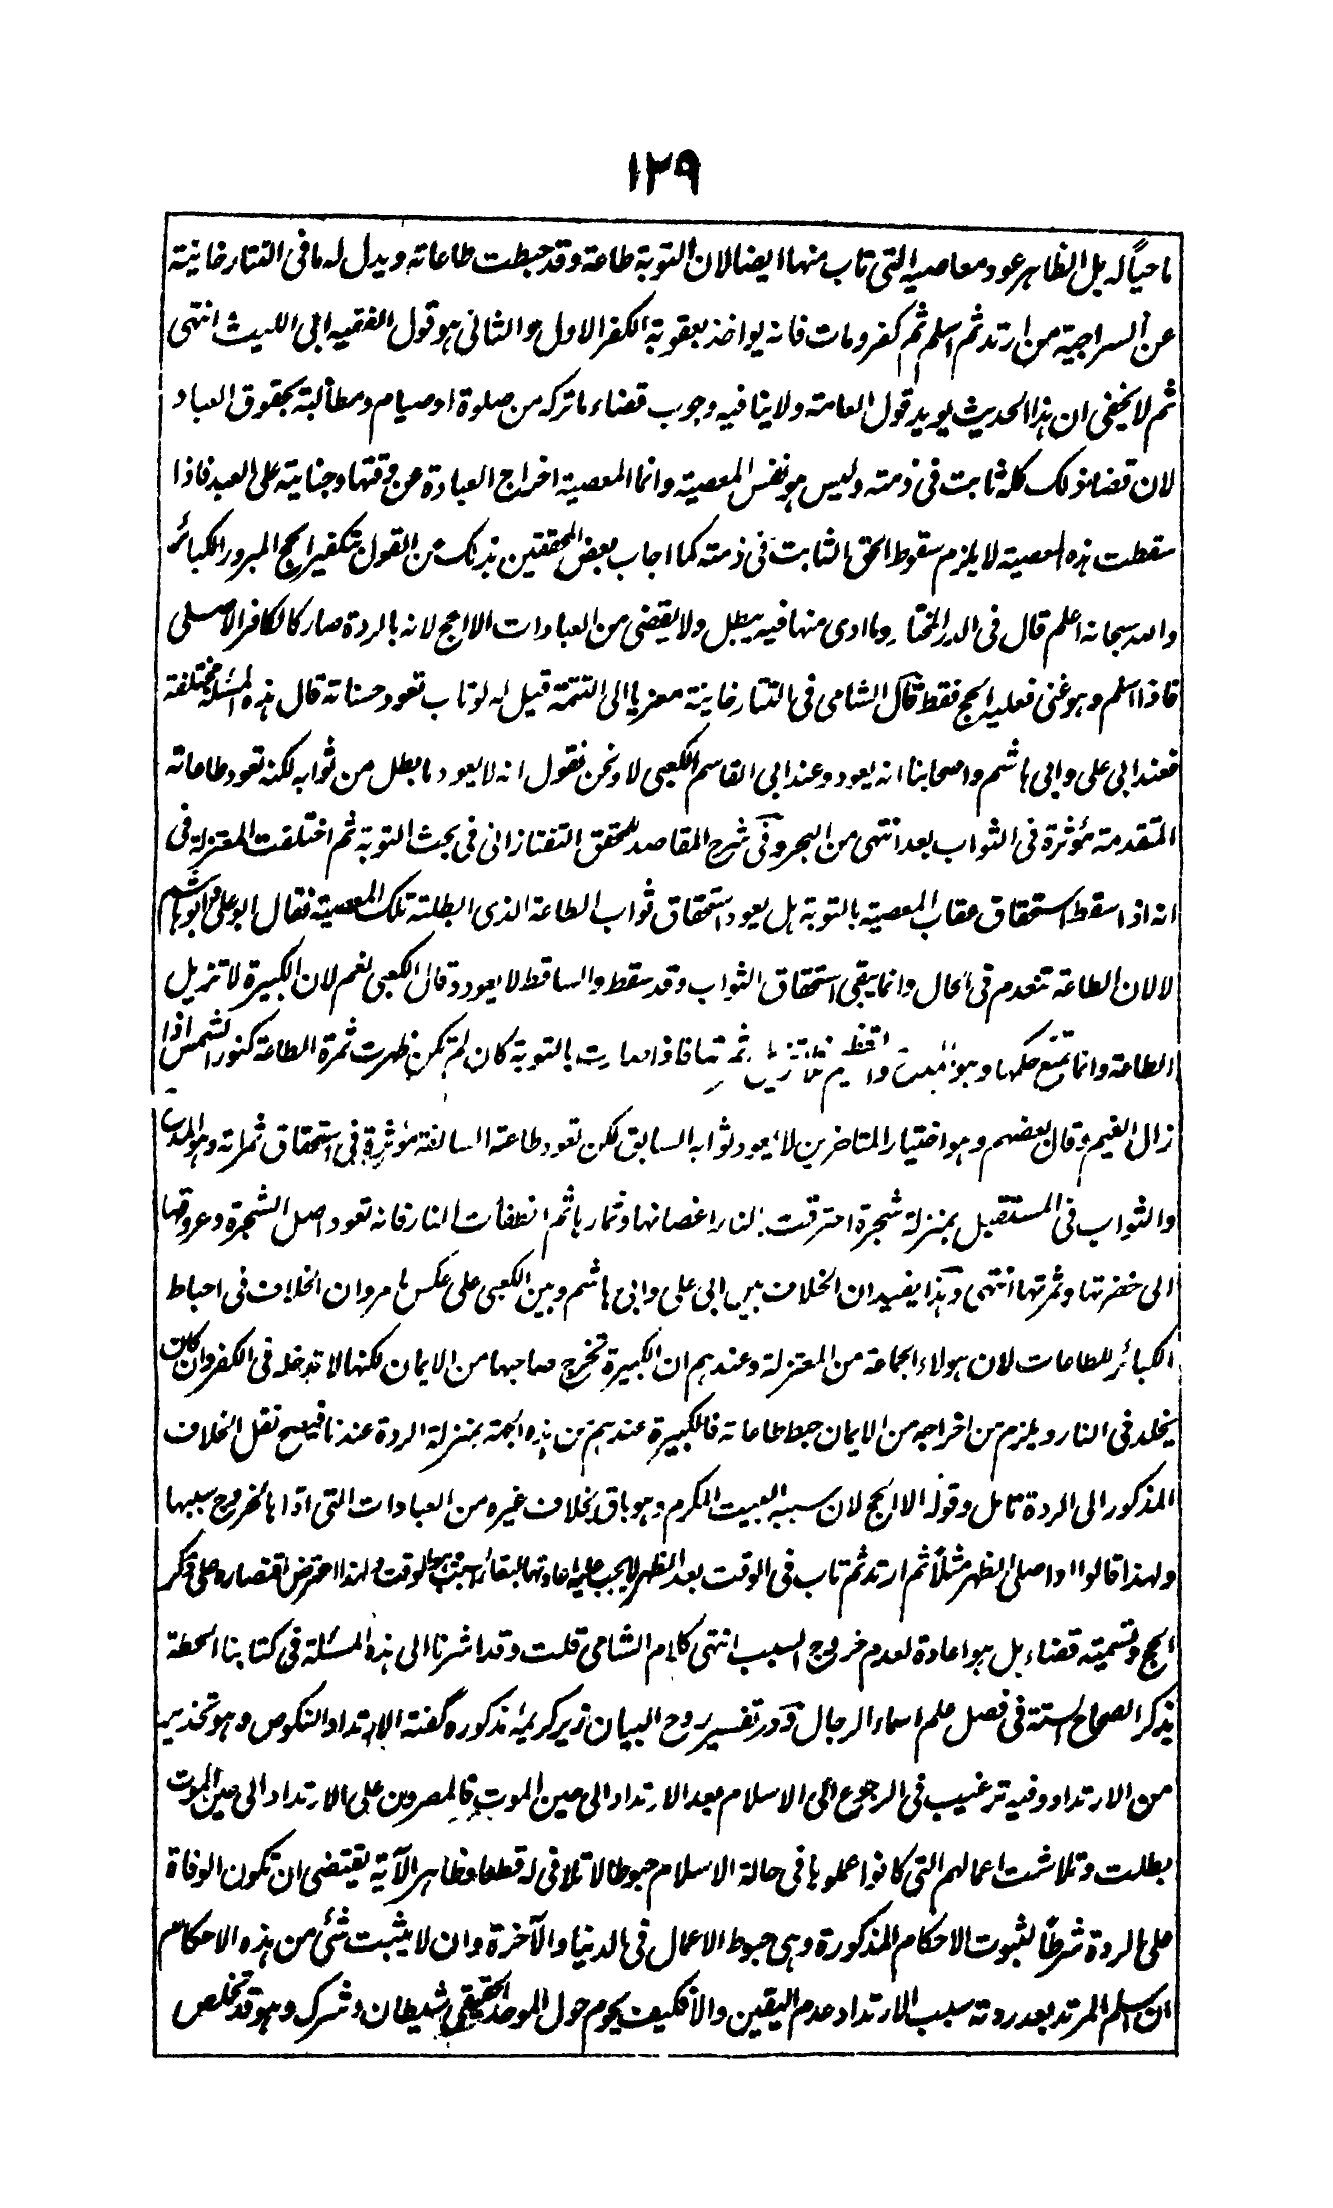 ١٢٩
ماحياً له بل الظاهر عود معاصيه التى تاب منها ايضا لان التوبة طاعة وقد حبطت طاعاته ويدل له ما فى التتارخانية
عن السراجية من ارتد ثم اسلم ثم كفر ومات فانه يواخذ بعقوبة الكفر الاول والثانى هو قول الفقيه ابى الليث انتهى
ثم لا يخفى ان هذا الحديث يويد قول العامة ولا ينافيه وجوب قضاء ما تركه من صلوة او صيام ومطالبة بحقوق العباد
لان قضا ذلك كله ثابت فى ذمته وليس هو نفس المعصية وانما المعصية اخراج العبادة عن وقتها وجناية على العبد فاذا
سقطت هذه المعصية لا يلزم سقوط الحق الثابت فى ذمته كما اجاب بعض المحققين بذلك عن القول بتكفير الحج المبرور الكبائر
والله سبحانه اعلم قال فى الدر المختار وما ادى منها فيه يبطل ولا يقضى من العبادات الا الحج لانه بالردة صار كالكافر الاصلى
فاذا اسلم وهو غنى فعليه الحج فقط قال الشامى فى التتارخانية معزيا الى التتمة قيل له لو تاب تعود حسناته قال هذه المسئلة مختلفة
فعند ابى على وابى هاشم واصحابنا انه يعود وعند ابى القاسم الكعبى لا ونحن نقول انه لا يعود ما بطل من ثوابه لكنه تعود طاعاته
المتقدمة مؤثرة فى الثواب بعد انتهى من البحر وفى شرح المقاصد للمحقق التفتازانى فى بحث التوبة ثم اختلفت المعتزلة فى
انه اذا سقط استحقاق عقاب المعصية بالتوبة هل يعود استحقاق ثواب الطاعة الذى ابطلته تلك المعصية فقال ابو على وابو هاشم
لا لان الطاعة تنعدم فى الحال وانما يبقى استحقاق الثواب وقد سقط والساقط لا يعود وقال الكعبى نعم لان الكبيرة لا تزيل
الطاعة وانما تمنع حكمها وهو المدح والتعظيم فلا تزيل ثمرتها فاذا صارت بالتوبة كان لم تكن ظهرت ثمرة الطاعة كنور الشمس اذا
زال الغيم وقال بعضهم وهو اختيار المتاخرين لا يعود ثوابه السابق لكن تعود طاعته السالفة مؤثرة فى استحقاق ثمراته وهو المدح
والثواب فى المستقبل بمنزلة شجرة احترقت بالنار اغصانها وثمارها ثم انطفأت النار فانه تعود اصل الشجرة وعروقها
الى خضرتها وثمرتها انتهى وهذا يفيد ان الخلاف بين ابى على وابى هاشم وبين الكعبى على عكس ما مر وان الخلاف فى احباط
الكبائر للطاعات لان هولاء الجماعة من المعتزلة وعندهم ان الكبيرة تخرج صاحبها من الايمان لكنها لا تدخله فى الكفر وان كان
يخلد فى النار ويلزم من اخراجه من الايمان حبط طاعاته فالكبيرة عندهم من هذه الجهة بمنزلة الردة عندنا فيصح نقل الخلاف
المذكور الى الردة تامل وقوله الا الحج لان سببه البيت المكرم وهو باق بخلاف غيره من العبادات التى اداها لخروج سببها
ولهذا قالوا اذا صلى الظهر مثلاً ثم ارتد ثم تاب فى الوقت بعد الظهر يجب عليه اعادتها لبقاء السبب وهو الوقت ولهذا اعترض اقتصاره على ذكر
الحج وتسميته قضاء بل هو اعادة لعدم خروج السبب انتهى كلام الشامى قلت وقد اشرنا الى هذه المسئلة فى كتابنا الحطة
بذكر الصحاح الستة فى فصل علم اسماء الرجال ودر تفسير روح البيان زير كريمۀ مذكوره گفته الارتداد النكوص وهو تحذير
من الارتداد وفيه ترغيب فى الرجوع الى الاسلام بعد الارتداد الى حين الموت فالمصرون على الارتداد الى حين الموت
بطلت وتلاشت اعمالهم التى كانوا عملوها فى حالة الاسلام حبوطا لا تلافى له قطعا وظاهر الآية يقتضى ان تكون الوفاة
على الردة شرطاً لثبوت الاحكام المذكورة وهى حبوط الاعمال فى الدنيا والآخرة وان لا يثبت شئ من هذه الاحكام
ان اسلم المرتد بعد ردته سبب الارتداد عدم اليقين والا فكيف يحوم حول الموحد الحقيقى شيطان وشرك وهو قد تخلص